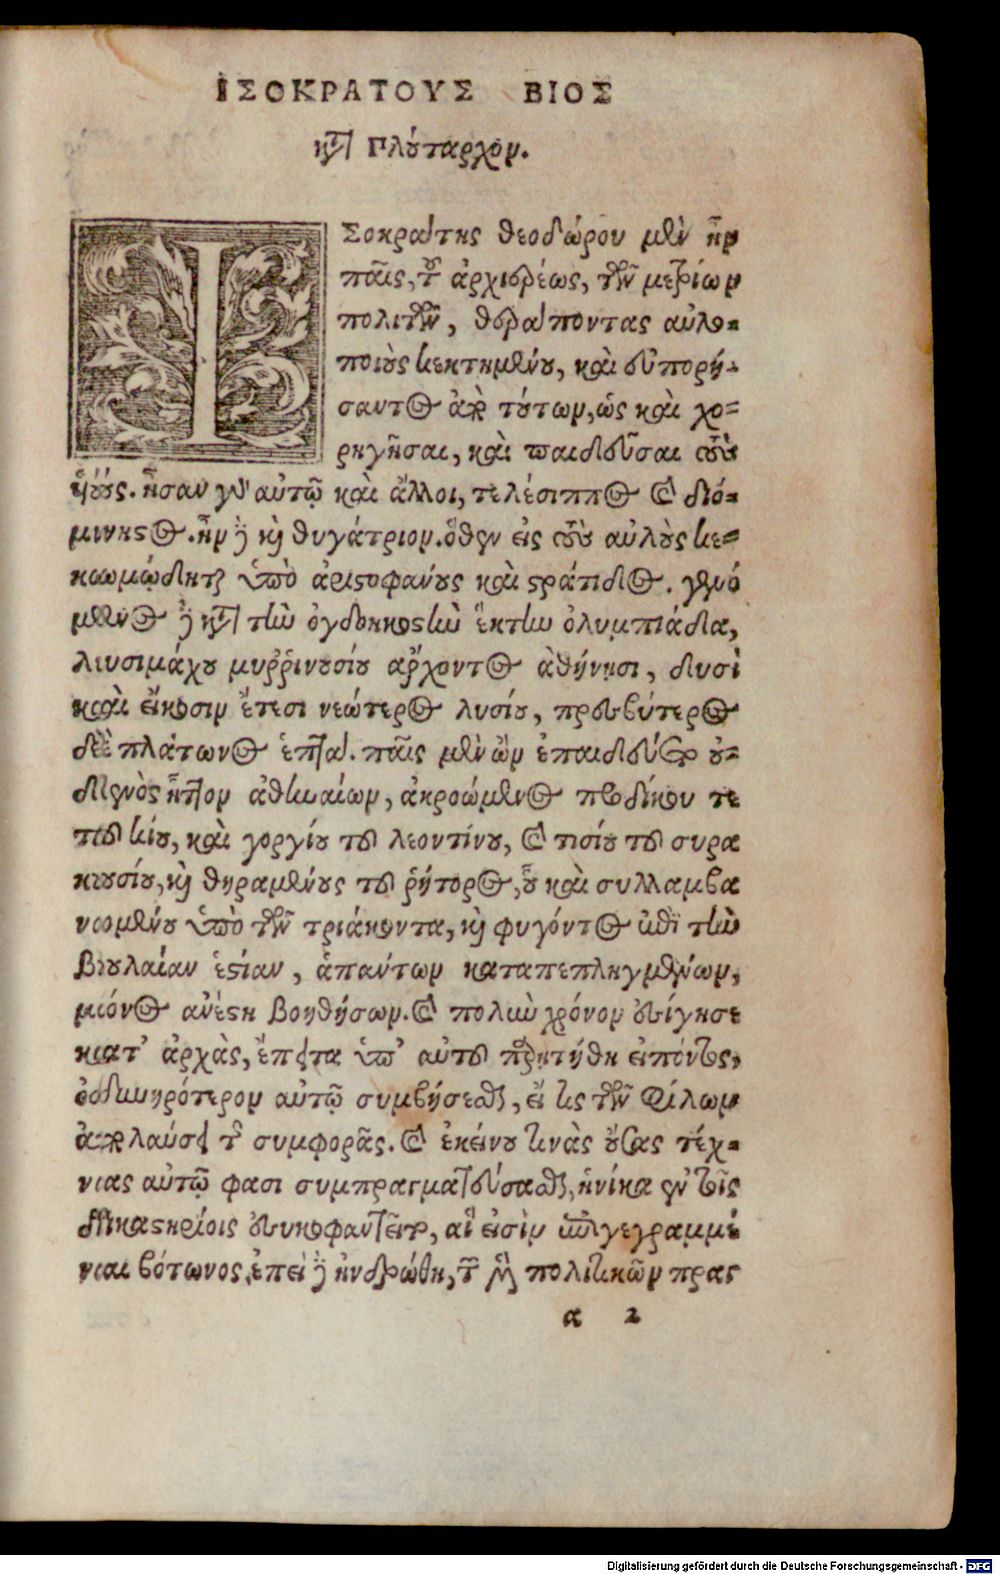 ΙΣΟΚΡΑΤΟΥΣ ΒΙΟΣ
κατὰ Πλούταρχον.
ΙΣοκράτης θεοδώρου μὲν ἦν
παῖς, τοῦ ἀρχιερέως, τῶν μετρίων
πολιτῶν, θεράποντας αὐλο-
ποιοὺς κεκτημένου, καὶ εὐπορή-
σαντος ἀπὸ τούτων, ὡς καὶ χο-
ρηγῆσαι, καὶ παιδεῦσαι τοὺς
ἡιούς. ἦσαν γὰρ αὐτῷ καὶ ἄλλοι, τελέσιππος καὶ διό-
μνηστος. ἦν δὲ καὶ θυγάτριον. ὅθεν εἰς τοὺς αὐλοὺς κε-
κωμῴδηται ὑπὸ ἀριστοφάνους καὶ στράτιδος. γενό
μενος δὲ κατὰ τὴν ὀγδοηκοστὴν ἕκτην ὀλυμπιάδα,
λυσιμάχου μυῤῥινουσίου ἄρχοντος ἀθήνησι, δυσὶ
καὶ εἴκοσιν ἔτεσι νεώτερος λυσίου, πρεσβύτερος
δὲ πλάτωνος ἑπτά. παῖς μὲν ὢν ἐπαιδεύετο οὐ-
δενὸς ἧττον ἀθηναίων, ἀκροώμενος προδίκου τε
τοῦ κίου, καὶ γοργίου τοῦ λεοντίνου, καὶ τισίου τοῦ συρα
κουσίου, καὶ θηραμένους τοῦ ῥήτορος, οὗ καὶ συλλαμβα
νομένου ὑπὸ τῶν τριάκοντα, καὶ φυγόντος ἐπὶ τὴν
βουλαίαν ἑστίαν, ἁπάντων καταπεπληγμένων,
μόνος ἀνέστη βοηθήσων. καὶ πολὺν χρόνον ἐσίγησε
κατ' ἀρχὰς, ἔπειτα ὑπ' αὐτοῦ παρῃτήθη εἰπόντος,
ὀδυνηρότερον αὐτῷ συμβήσεσθαι, εἴ τις τῶν φίλων
ἀπολαύσει τῆς συμφορᾶς. καὶ ἐκείνου τινὰς οὔσας τέχ-
νας αὐτῷ φασι συμπραγματεύσασθαι, ἡνίκα ἐν τοῖς
δικαστηρίοις ἐσυκοφαντεῖτο, αἵ εἰσὶν ἐπιγεγραμμέ
ναι βότωνος. ἐπεὶ δὲ ἠνδρώθη, τῶν μὲν πολιτικῶν πραγ
α 2
Digitalisierung gefördert durch die Deutsche Forschungsgemeinschaft - DFG